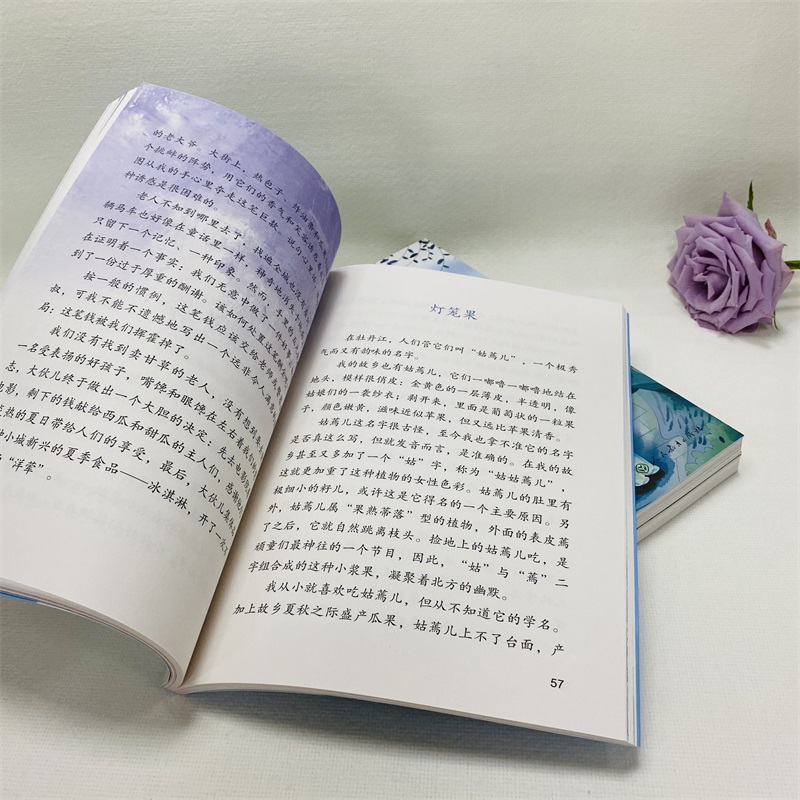 的老大爷。大街上，热包子、炸油条和
个挑衅的阵势，用它们的香气和笑容诱惑
图从我的手心里夺走这笔巨款。说句心里
种诱惑是很困难的。
老人不知到哪里去了，找遍全城也没
辆马车也好像在童话里一样，神奇地消失
只留下一个记忆、一种印象。然而，手里的
在证明着一个事实：我们无意中做了一件好事
到了一份过于厚重的酬谢。该如何处置这笔
按一般的惯例，这笔钱应该交给老师或
叔，可我不能不遗憾地写出一个远非令人满意
局：这笔钱被我们挥霍掉了。
我们没有找到卖甘草的老人，没有想到要
一名受表扬的好孩子，嘴馋和眼馋在左右着我
志，大伙儿终于做出一个大胆的决定，先去电影
电影，剩下的钱献给西瓜和甜瓜的主人们，感谢
炎热的夏日带给人们的享受，最后，大伙儿集体
种小城新兴的夏季食品——冰淇淋，开了一次
“洋荤”。
灯笼果
在牡丹江，人们管它们叫“姑蔫儿”，一个极秀
气而又有韵味的名字。
我的故乡也有姑蔫儿，它们一嘟噜一嘟噜地结在
地头，模样很俏皮：金黄色的一层薄皮，半透明，像
姑娘们的一袭纱衣；剥开来，里面是葡萄状的一粒果
子，颜色嫩黄，滋味近似苹果，但又远比苹果清香。
姑蔫儿这名字很古怪，至今我也拿不准它的名字
是否真这么写，但就发音而言，是准确的。在我的故
乡甚至又多加了一个“姑”字，称为“姑姑蔫儿”，
这就更加重了这种植物的女性色彩。姑蔫儿的肚里有
极细小的籽儿，或许这是它得名的一个主要原因。另
外，姑蔫儿属“果熟蒂落”型的植物，外面的表皮蔫
了之后，它就自然跳离枝头。捡地上的姑蔫儿吃，是
顽童们最神往的一个节目，因此，“姑”与“蔫”二
字组合成的这种小浆果，凝聚着北方的幽默。
我从小就喜欢吃姑蔫儿，但从不知道它的学名。
加上故乡夏秋之际盛产瓜果，姑蔫儿上不了台面，产
57